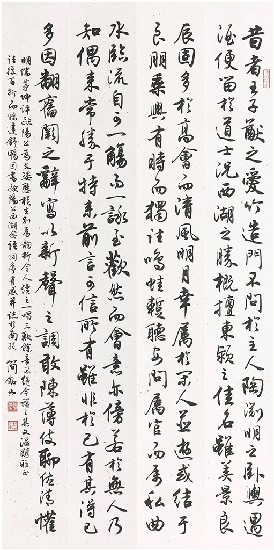 昔者王子猷之愛竹造門不問於主人陶淵明之臥輿遇
酒便留於道士況西湖之勝概擅東潁之佳名雖美景良
辰固多於高會而清風明月幸屬於閒人並遊或結于
良朋乘興有時而獨往鳴蛙暫聽安問屬官而屬私曲
水臨流自可一觴而一詠至歡然而會意亦傍若於無人乃
知偶來常勝于特來前言可信所有雖非於己有其得已
多因翻舊闋之辭寫以新聲之調敢陳薄伎聊佐清懽